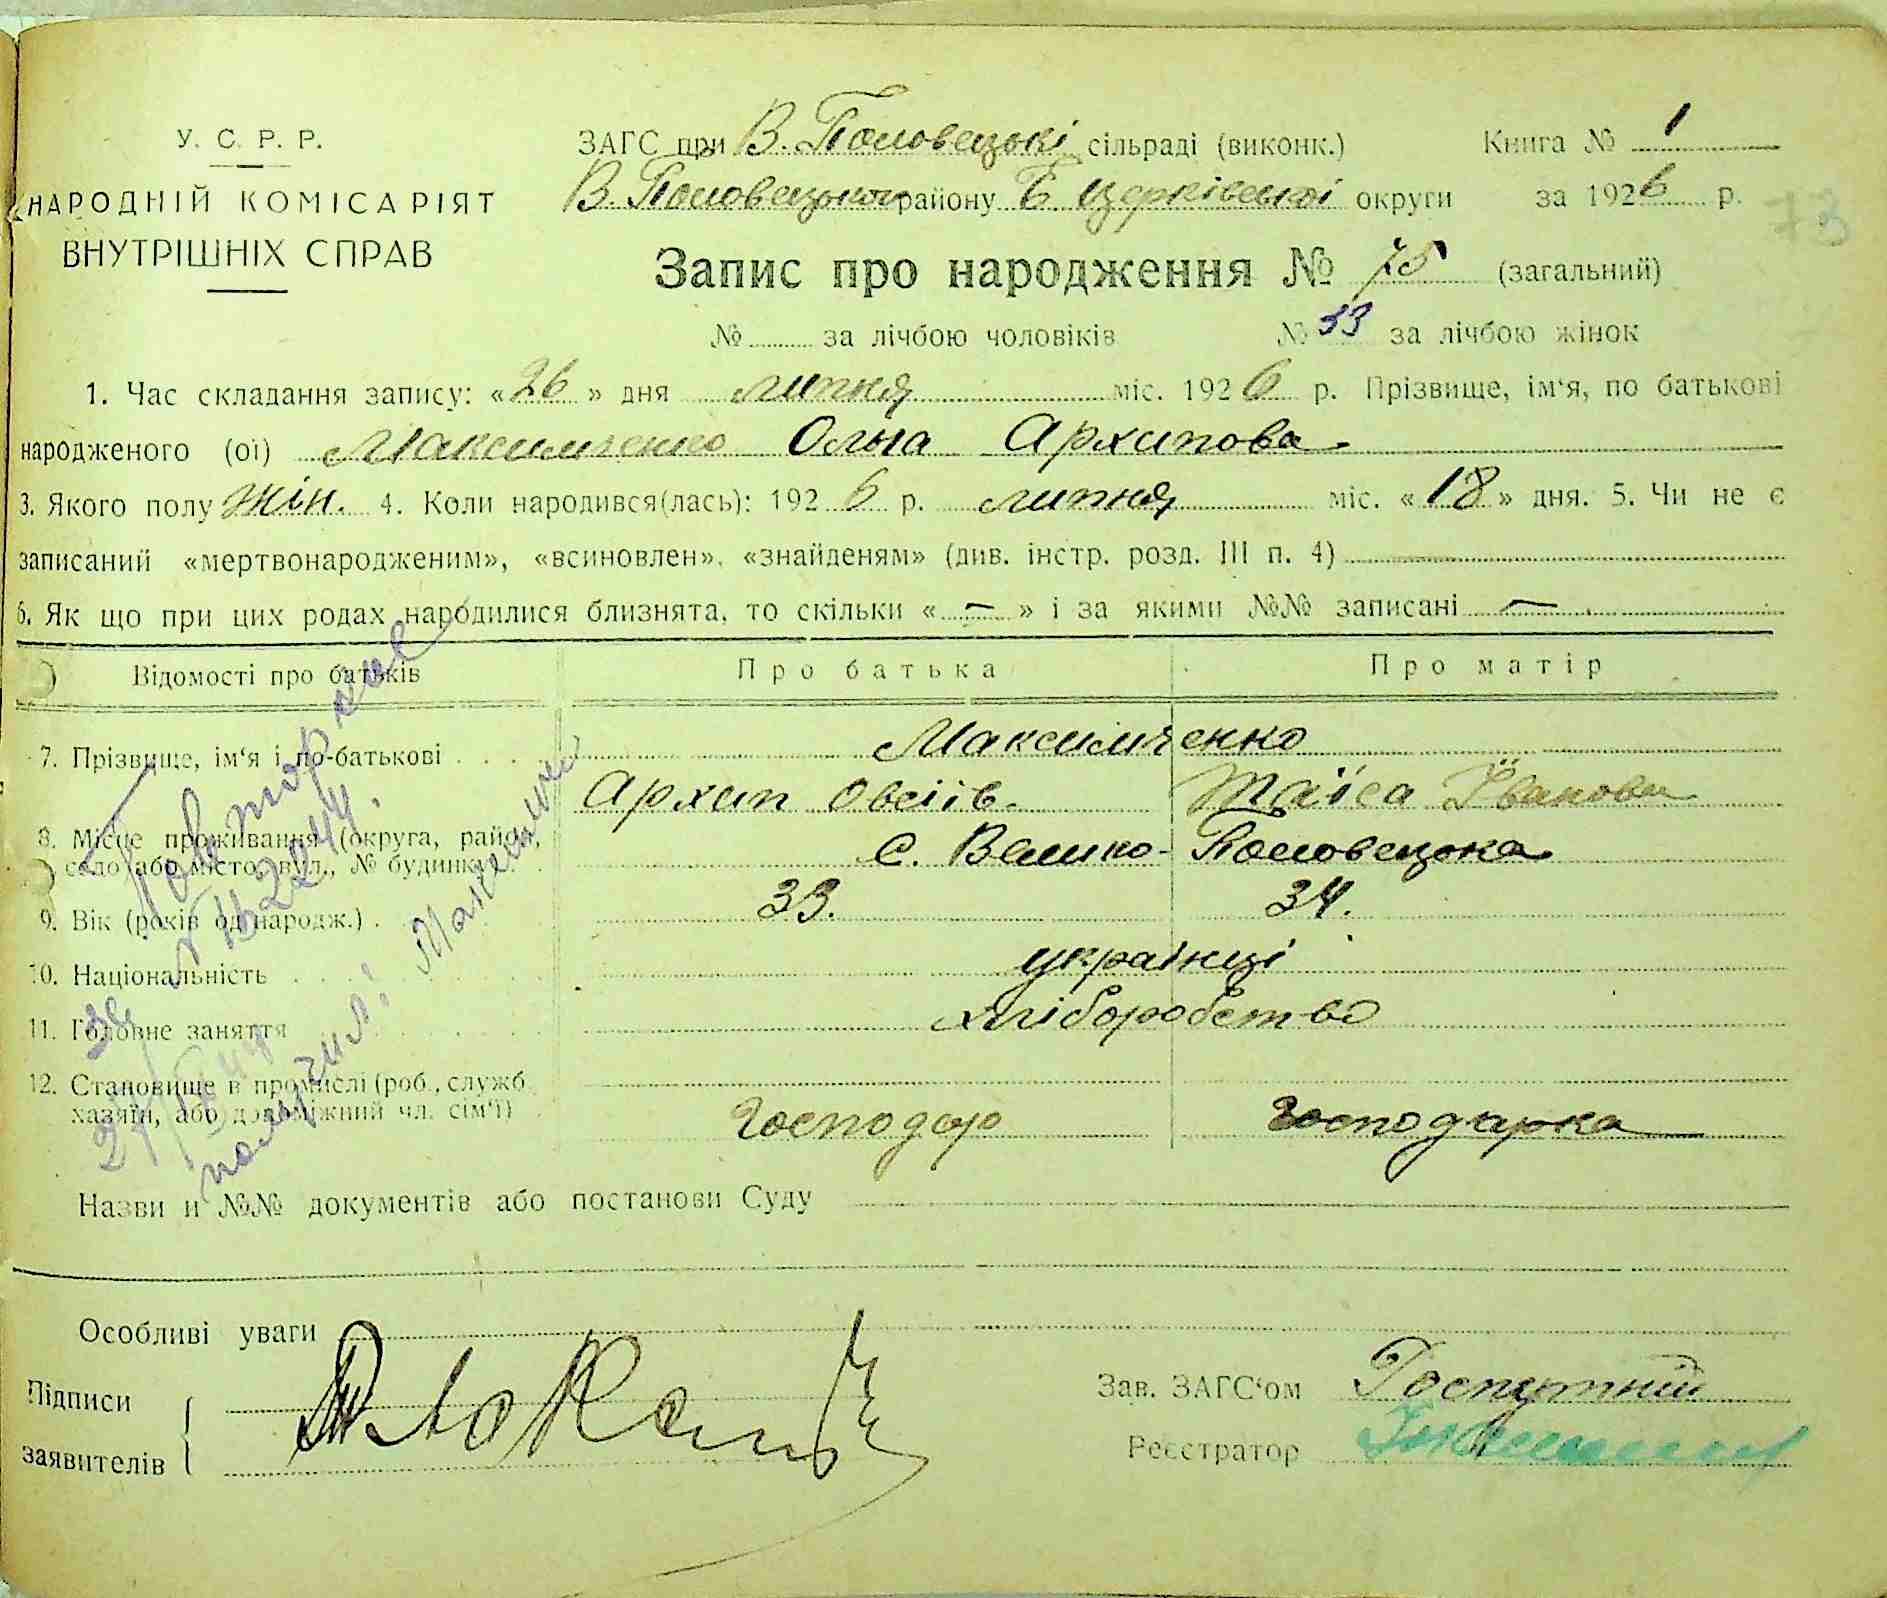 У. С. Р. Р.
НАРОДНІЙ КОМІСАРІЯТ
ВНУТРІШНІХ СПРАВ
ЗАГС при В. Половецькі сільраді (виконк.) Книга № 1
В. Половецького району Б Церківської округи за 1926 р.
73
Запис про народження № 75 (загальний)
№ за лічбою чоловіків № 33 за лічбою жінок
1. Час складання запису: «26» дня липня міс. 1926 р. Прізвище, ім'я, по батькові
народженого (ої) Максимченко Ольга Архипова
3. Якого полу жін. 4. Коли народився(лась): 1926 р. липня міс. «18» дня. 5. Чи не є
записаний «мертвонародженим», «всиновлен», «знайденям» (див. інстр. розд. III п. 4)
6. Як що при цих родах народилися близнята, то скільки « — » і за якими №№ записані —
Відомості про батьків Про батька Про матір
7. Прізвище, ім'я і по-батькові Максимченко
Архип Овсіїв. Таїса Іванова
8. Місце проживання (округа, район,
село або місто, вул., № будинку) с. Велико-Половецька
9. Вік (років од народж.) 33. 34.
10. Національність українці
11. Головне заняття хліборобство
12. Становище в промислі (роб., служб.
хазяїн, або допоміжний чл. сім'ї) господар господарка
Повторние
получил:
Назви и №№ документів або постанови Суду
Особливі уваги
Підписи
заявителів
Зав. ЗАГС'ом
Реєстратор